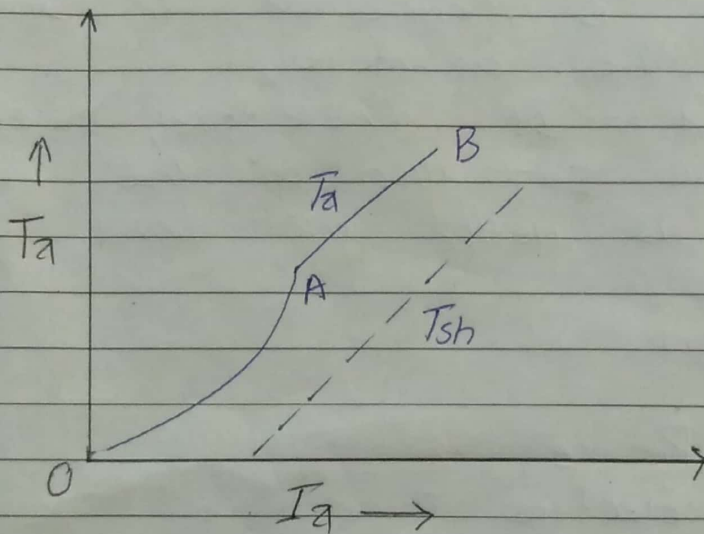 B
Ta
Ta
A
Tsh
O
Ia